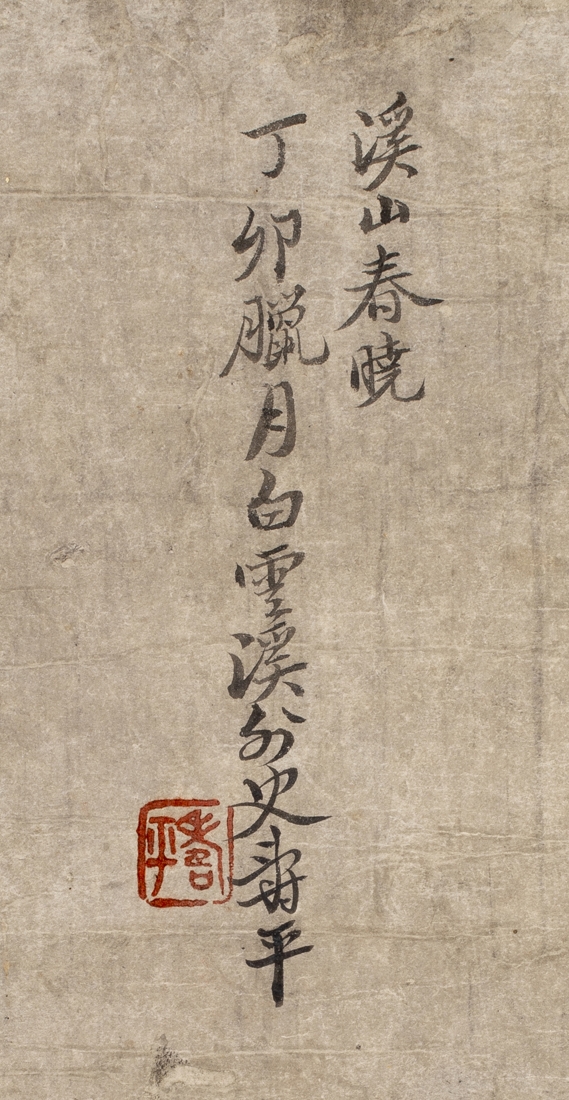 溪山春曉
丁卯臘月白雲溪外史壽平
壽平